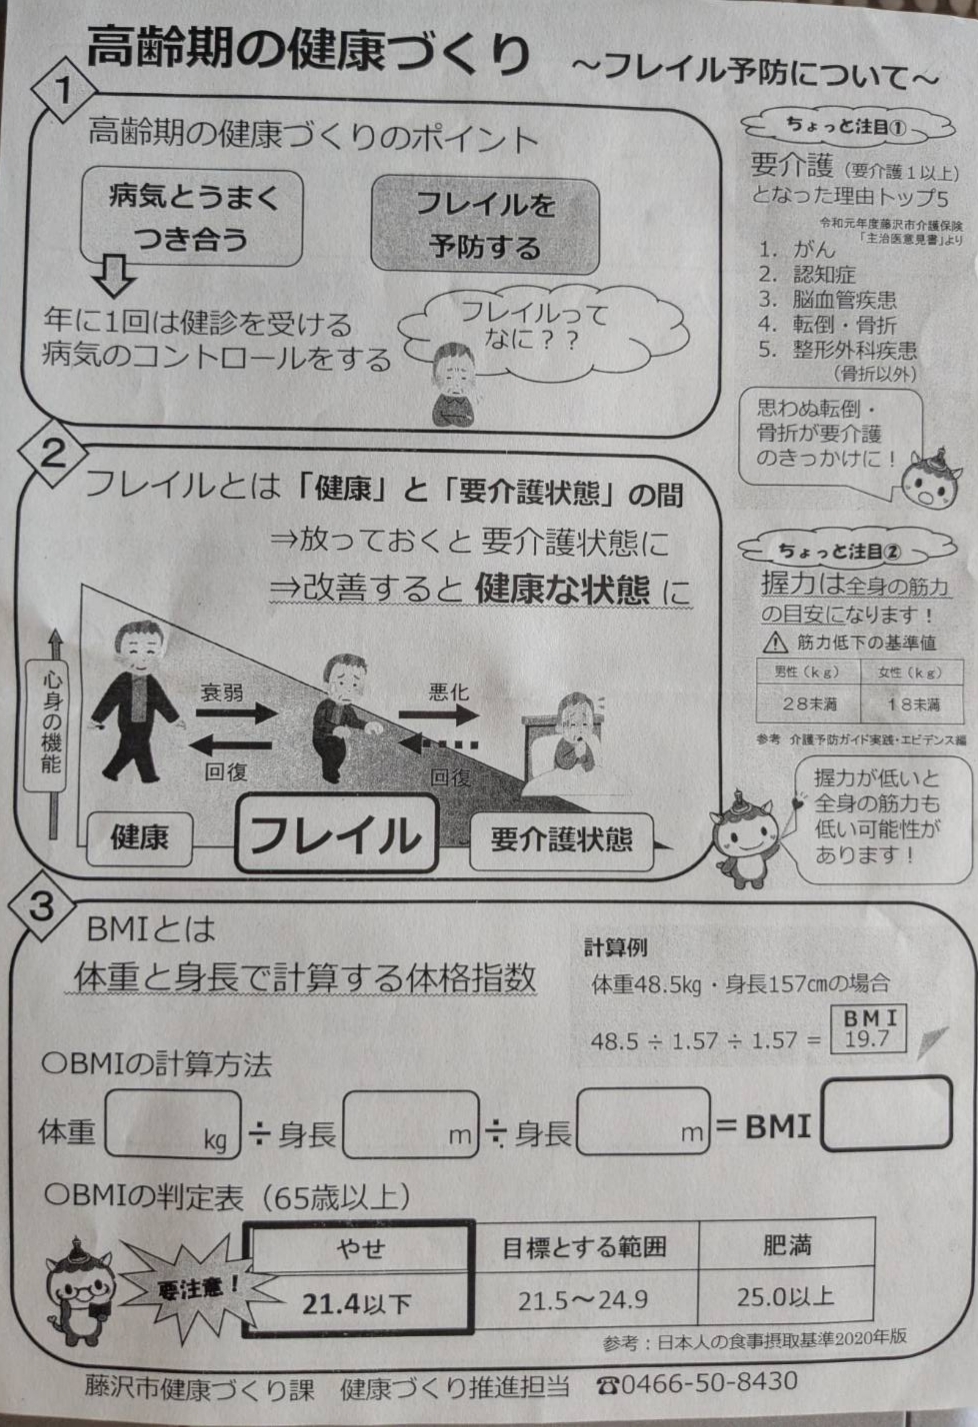 高齢期の健康づくり ～フレイル予防について～
1
高齢期の健康づくりのポイント
病気とうまく
つき合う
フレイルを
予防する
年に1回は健診を受ける
病気のコントロールをする
フレイルって
なに？？
ちょっと注目①
要介護（要介護１以上）
となった理由トップ5
令和元年度藤沢市介護保険
「主治医意見書」より
1. がん
2. 認知症
3. 脳血管疾患
4. 転倒・骨折
5. 整形外科疾患
（骨折以外）
思わぬ転倒・
骨折が要介護
のきっかけに！
2
フレイルとは「健康」と「要介護状態」の間
⇒放っておくと 要介護状態に
⇒改善すると 健康な状態 に
心身の機能
衰弱
回復
悪化
回復
健康
フレイル
要介護状態
ちょっと注目②
握力は全身の筋力
の目安になります！
⚠ 筋力低下の基準値
男性（ｋｇ） 女性（ｋｇ）
２８未満 １８未満
参考 介護予防ガイド実践・エビデンス編
握力が低いと
全身の筋力も
低い可能性が
あります！
3
BMIとは
体重と身長で計算する体格指数
計算例
体重48.5㎏・身長157㎝の場合
48.5 ÷ 1.57 ÷ 1.57 =
ＢＭＩ
19.7
〇BMIの計算方法
体重 kg ÷ 身長 m ÷ 身長 m = BMI
〇BMIの判定表（65歳以上）
要注意！
やせ 目標とする範囲 肥満
21.4以下 21.5～24.9 25.0以上
参考：日本人の食事摂取基準2020年版
藤沢市健康づくり課 健康づくり推進担当 ☎0466-50-8430